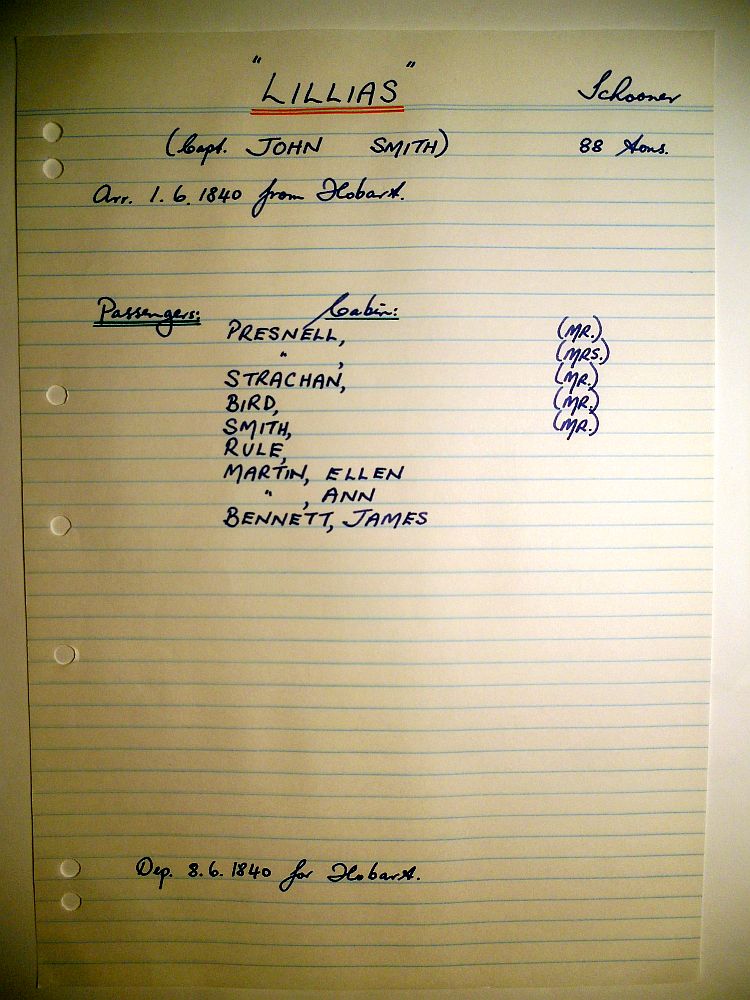 "LILLIAS" Schooner
(Capt. JOHN SMITH) 88 tons.
Arr. 1.6.1840 from Hobart.
Passengers: Cabin:
PRESNELL, (MR.)
" , (MRS.)
STRACHAN, (MR.)
BIRD, (MR.)
SMITH, (MR.)
RULE,
MARTIN, ELLEN
" , ANN
BENNETT, JAMES
Dep. 8.6.1840 for Hobart.